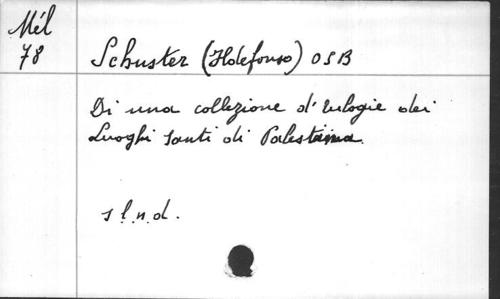 Mél
78
Schuster (Ildefonso) OSB
Di una collezione d'eulogie dei
Luoghi Santi di Palestina.
s l.n.d.